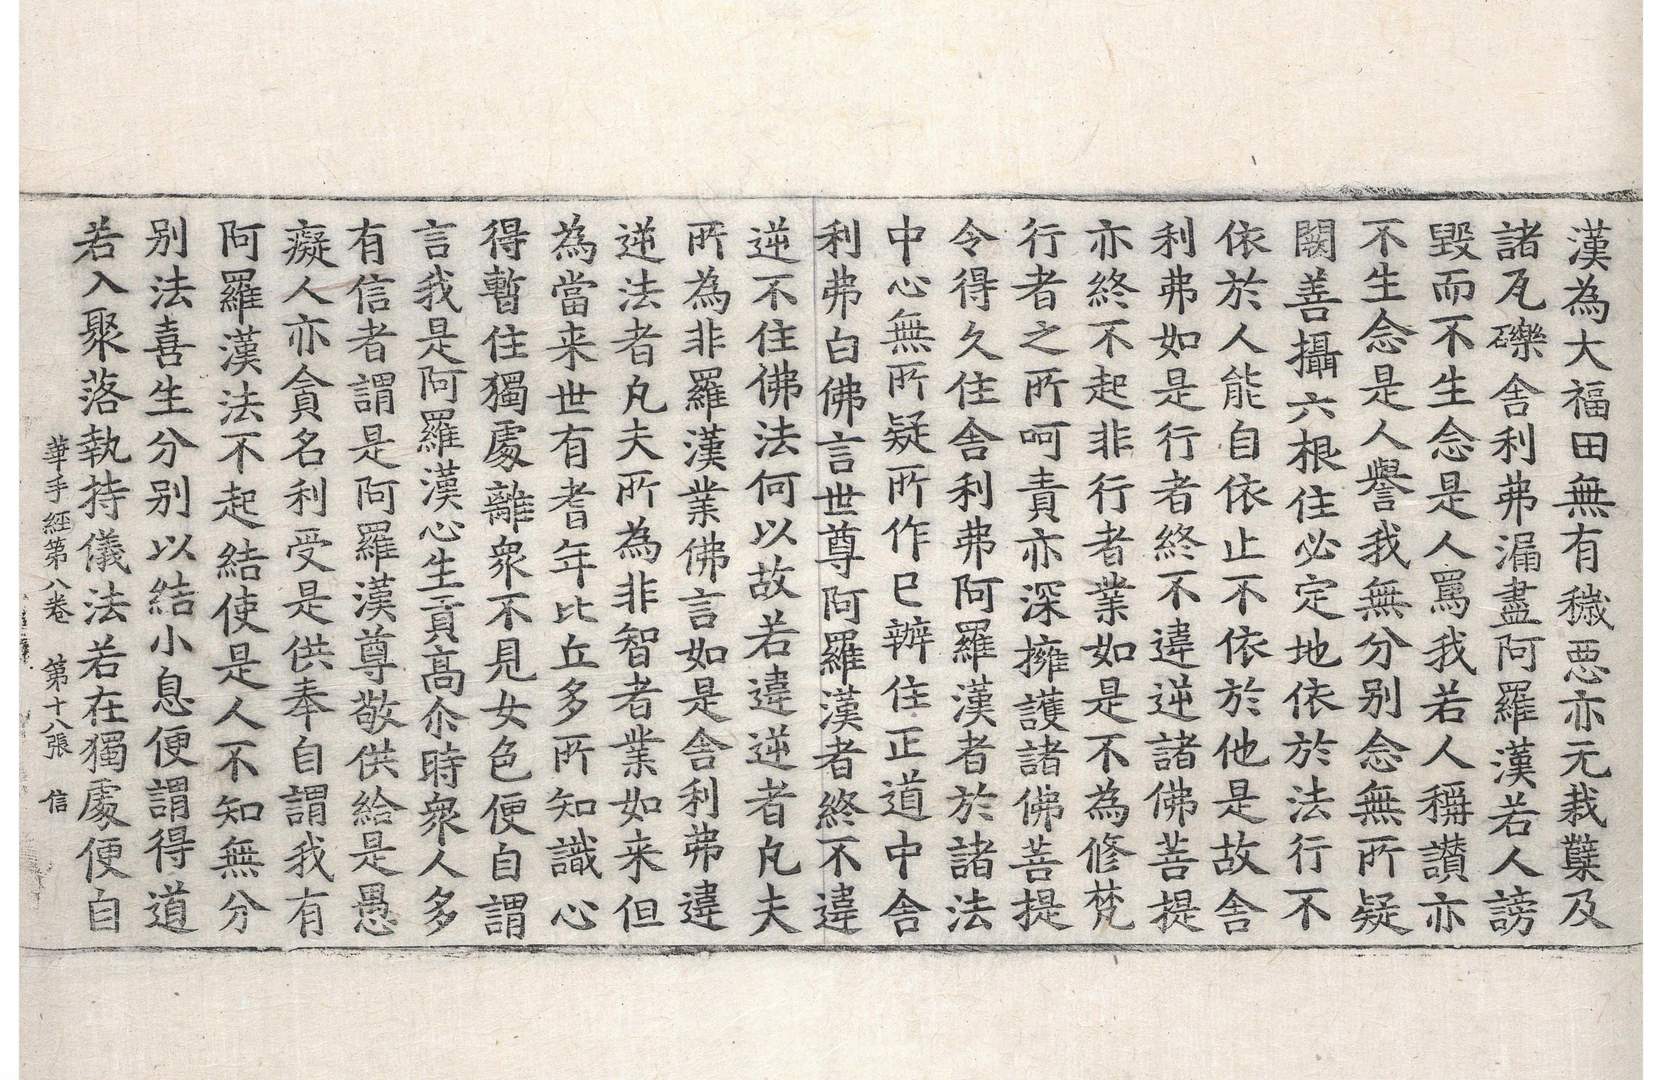 漢為大福田無有穢惡亦无栽蘖及
諸瓦礫舍利弗漏盡阿羅漢若人謗
毀而不生念是人罵我若人稱讃亦
不生念是人譽我無分别念無所疑
闕善攝六根住必定地依於法行不
依於人能自依止不依於他是故舍
利弗如是行者終不違逆諸佛菩提
亦終不起非行者業如是不為修梵
行者之所呵責亦深擁護諸佛菩提
令得久住舍利弗阿羅漢者於諸法
中心無所疑所作已辦住正道中舍
利弗白佛言世尊阿羅漢者終不違
逆不住佛法何以故若違逆者凡夫
所為非羅漢業佛言如是舍利弗違
逆法者凡夫所為非智者業如来但
為當来世有耆年比丘多所知識心
得暫住獨處離衆不見女色便自謂
言我是阿羅漢心生貢高尒時衆人多
有信者謂是阿羅漢尊敬供給是愚
癡人亦貪名利受是供奉自謂我有
阿羅漢法不起結使是人不知無分
别法喜生分别以結小息便謂得道
若入聚落執持儀法若在獨處便自
華手経第八卷 第十八張 信